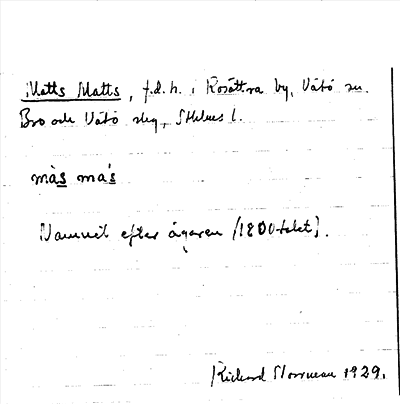 Matts Matts, f.d.h. i Rosättra by, Vätö sn.
Bro och Vätö skg, Sthlms l.
màs más
Namnet efter ägaren (1800-talet).
Richard 1929.